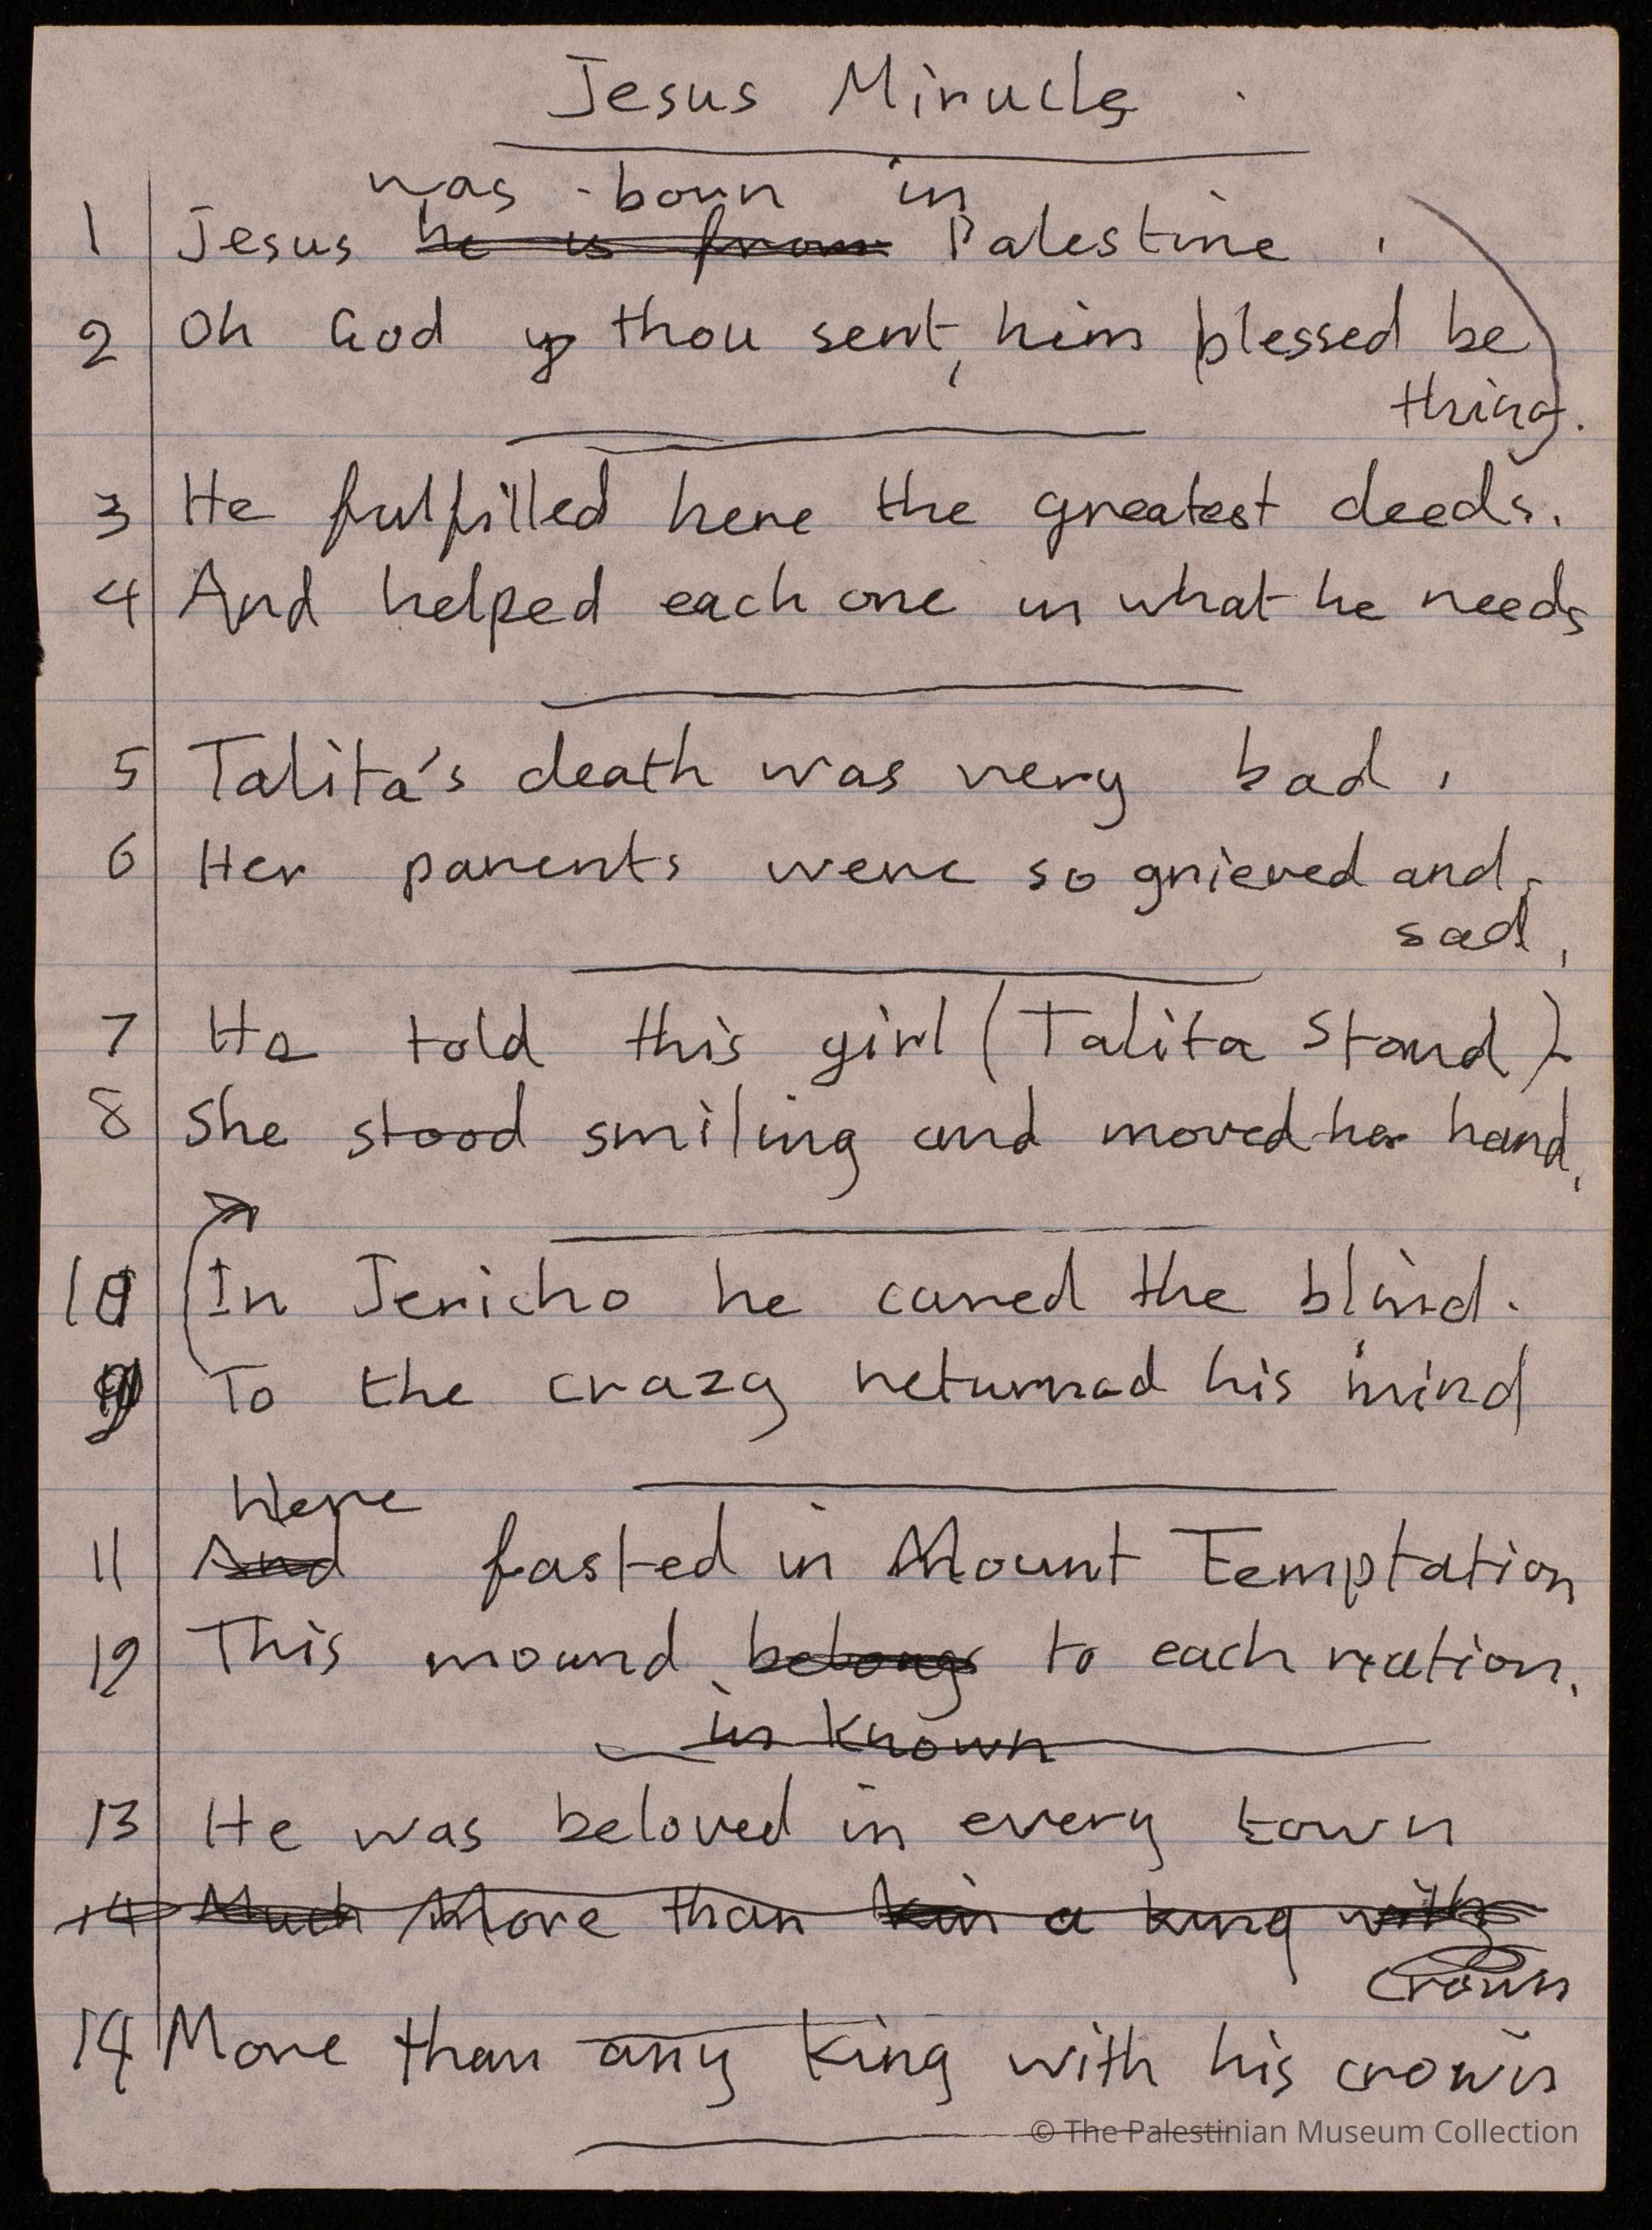 Jesus Miracles
was born in
1 Jesus he is from Palestine,
2 Oh God thou sent, him blessed be
thing.
3 He fulfilled here the greatest deeds.
4 And helped each one in what he needs
5 Talita's death was very bad,
6 Her parents were so grieved and
sad,
7 He told this girl (Talita Stand)
8 She stood smiling and moved her hand,
10 In Jericho he cured the blind.
9 To the crazy returned his mind
Here
11 And fasted in Mount Temptation
12 This mound belongs to each nation.
is known
13 He was beloved in every town
14 Much More than kin a king with
crown
14 More than any king with his crown
© The Palestinian Museum Collection